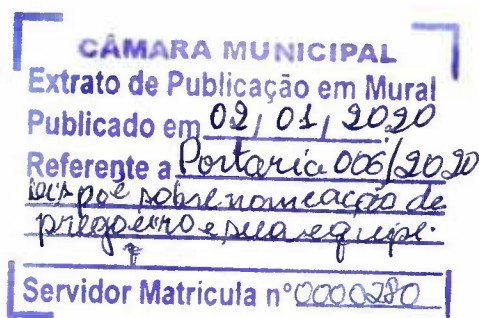 CÂMARA MUNICIPAL
Extrato de Publicação em Mural
Publicado em 02/01/2020
Referente a Portaria 006/2020
sobre nomeação de
pregoeiro e sua equipe.
Servidor Matrícula nº 0000280